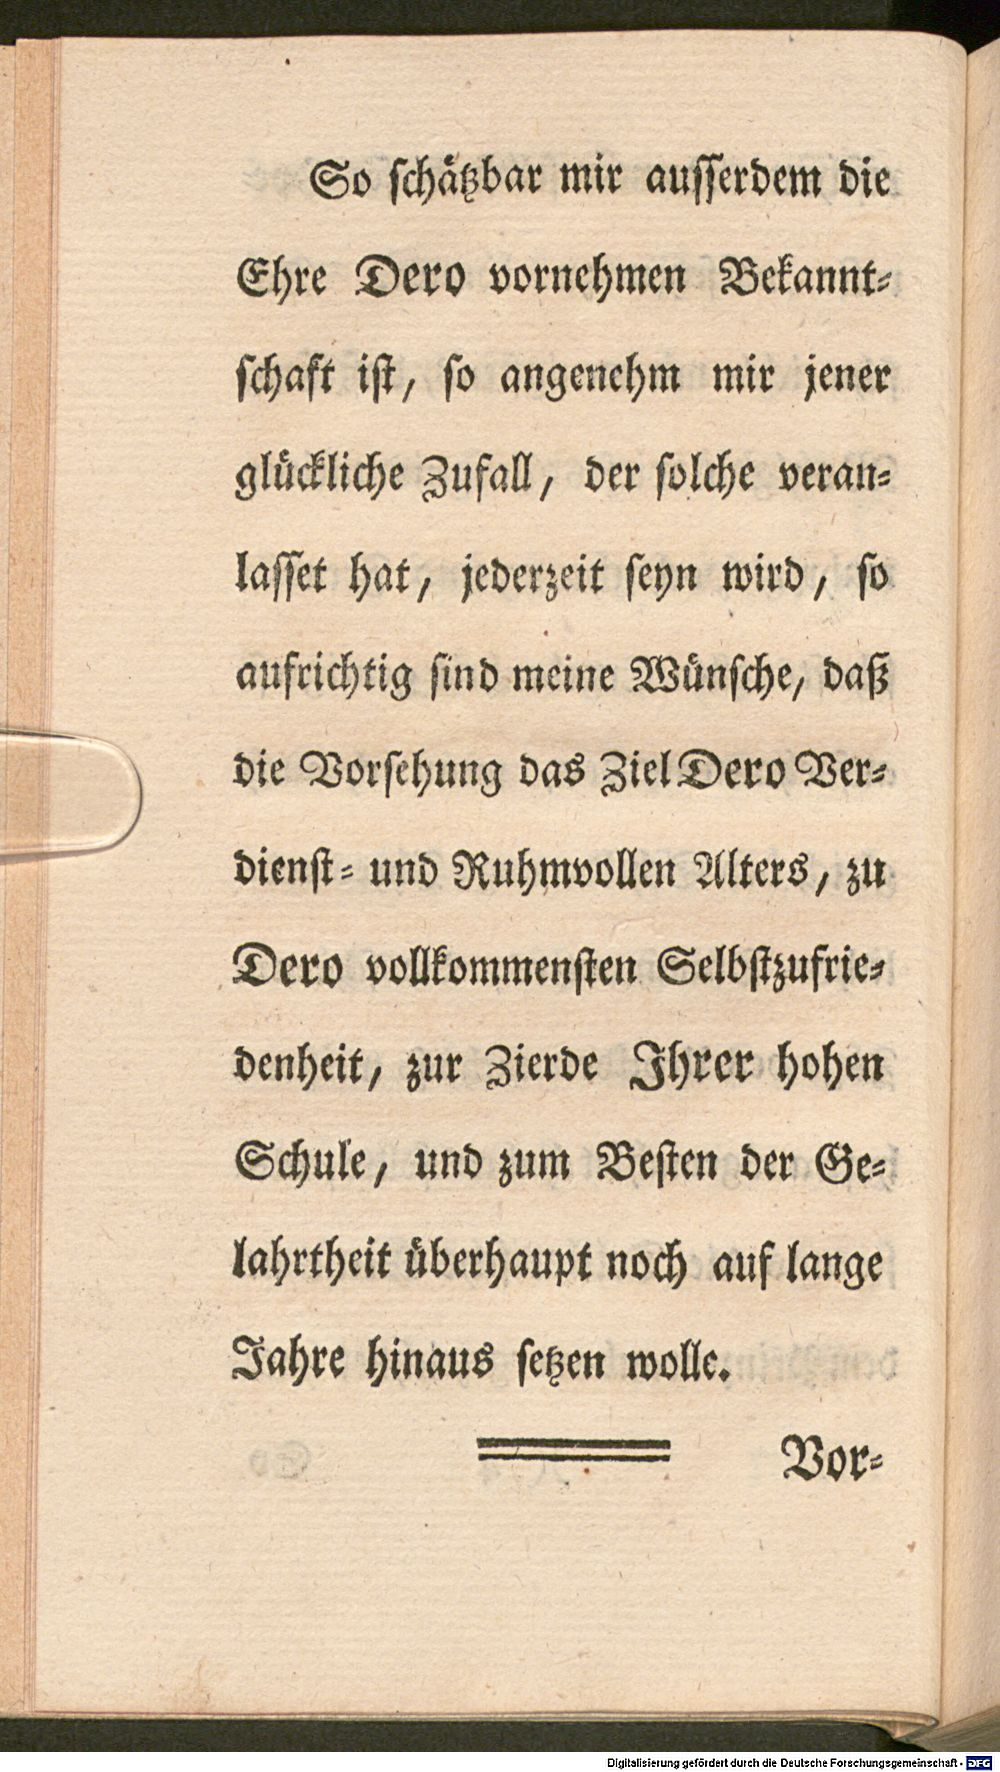 So schätzbar mir ausserdem die
Ehre Dero vornehmen Bekannt-
schaft ist, so angenehm mir jener
glückliche Zufall, der solche veran-
lasset hat, jederzeit seyn wird, so
aufrichtig sind meine Wünsche, daß
die Vorsehung das Ziel Dero Ver-
dienst- und Ruhmvollen Alters, zu
Dero vollkommensten Selbstzufrie-
denheit, zur Zierde Ihrer hohen
Schule, und zum Besten der Ge-
lahrtheit überhaupt noch auf lange
Jahre hinaus setzen wolle.
Vor-
Digitalisierung gefördert durch die Deutsche Forschungsgemeinschaft - DFG